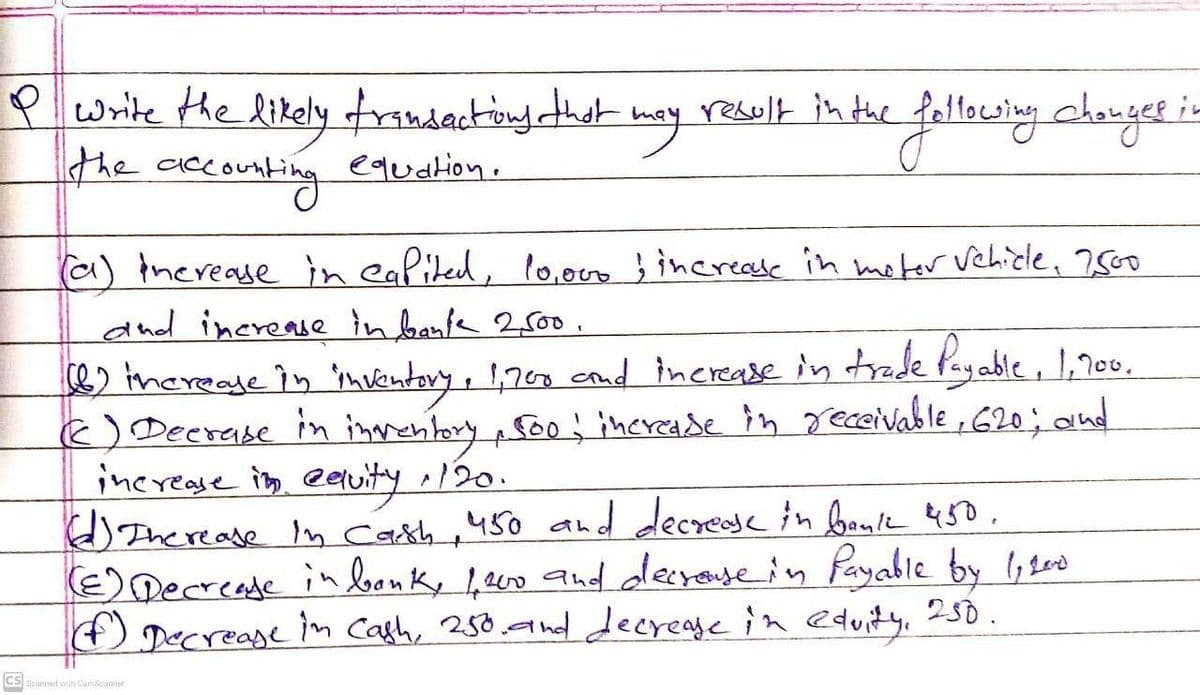 Q write the likely transactions that may result in the following changes in
the accounting equation.
(a) increase in capital, 10,000 ; increase in motor vehicle, 7500
and increase in bank 2,500.
(b) increase in inventory, 1,700 and increase in trade Payable, 1,700.
(c) Decrease in inventory, 500 ; increase in receivable, 620; and
increase in equity, 120.
(d) Increase In Cash, 450 and decrease in bank 450.
(E) Decrease in bank, 1,200 and decrease in Payable by 1,200
(f) Decrease in Cash, 250. and decrease in equity, 250.
CS Scanned with CamScanner